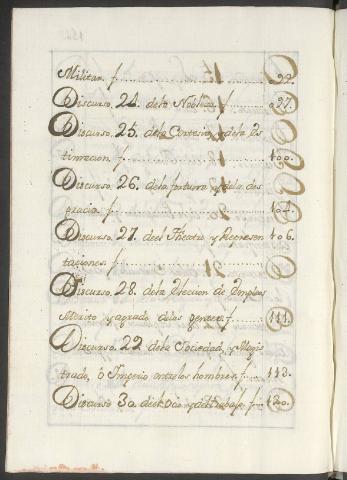 Militar. f. 92.
Discurso. 24. de la Nobleza. f. 97.
Discurso. 25. de la Cortesia, y de la Es
timacion. f. 100.
Discurso. 26. de la fortuna y de la des
gracia. f. 104.
Discurso. 27. del Theatro y Represen 106.
taciones. f.
Discurso. 28. de la Eleccion de Empleos
Merito y agrado de las gentes. f. 111.
Discurso. 22 de la Sociedad, y Magis
trado, ò Imperio entre los hombres. f. 113.
Discurso 30. del Ocio, y del trabajo. f. 120.